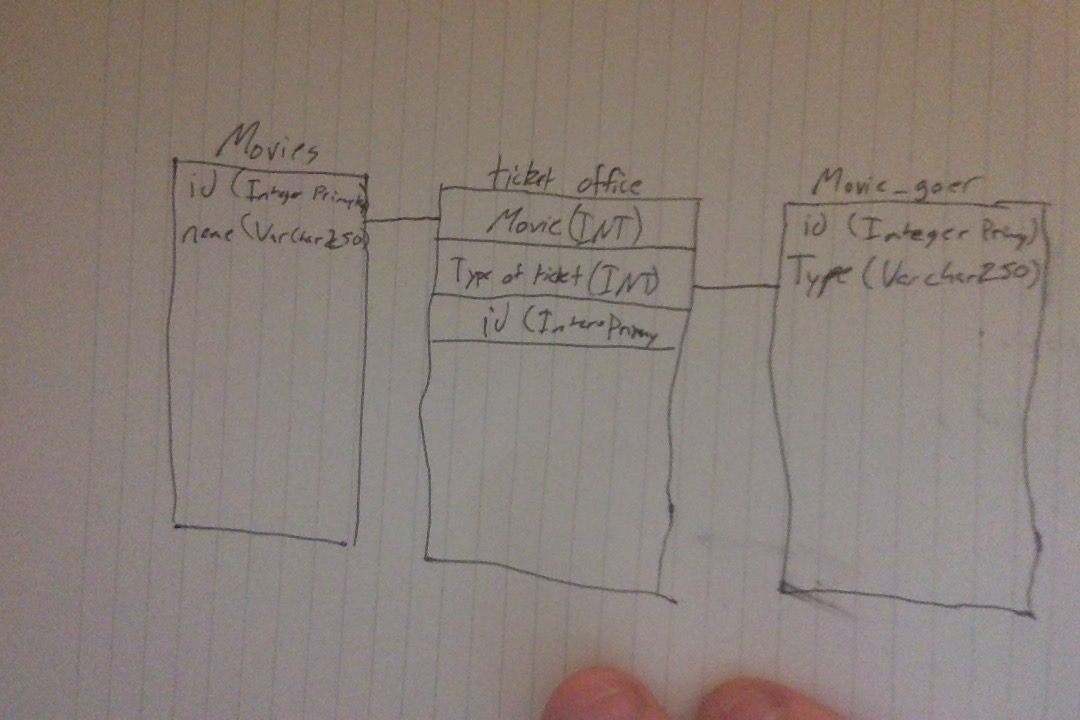 Movies
id (Integer Primary)
name (Varchar250)
ticket office
Movie (INT)
Type of ticket (INT)
id (Intero Primary
Movie_goer
id (Integer Primy)
Type (Varchar250)